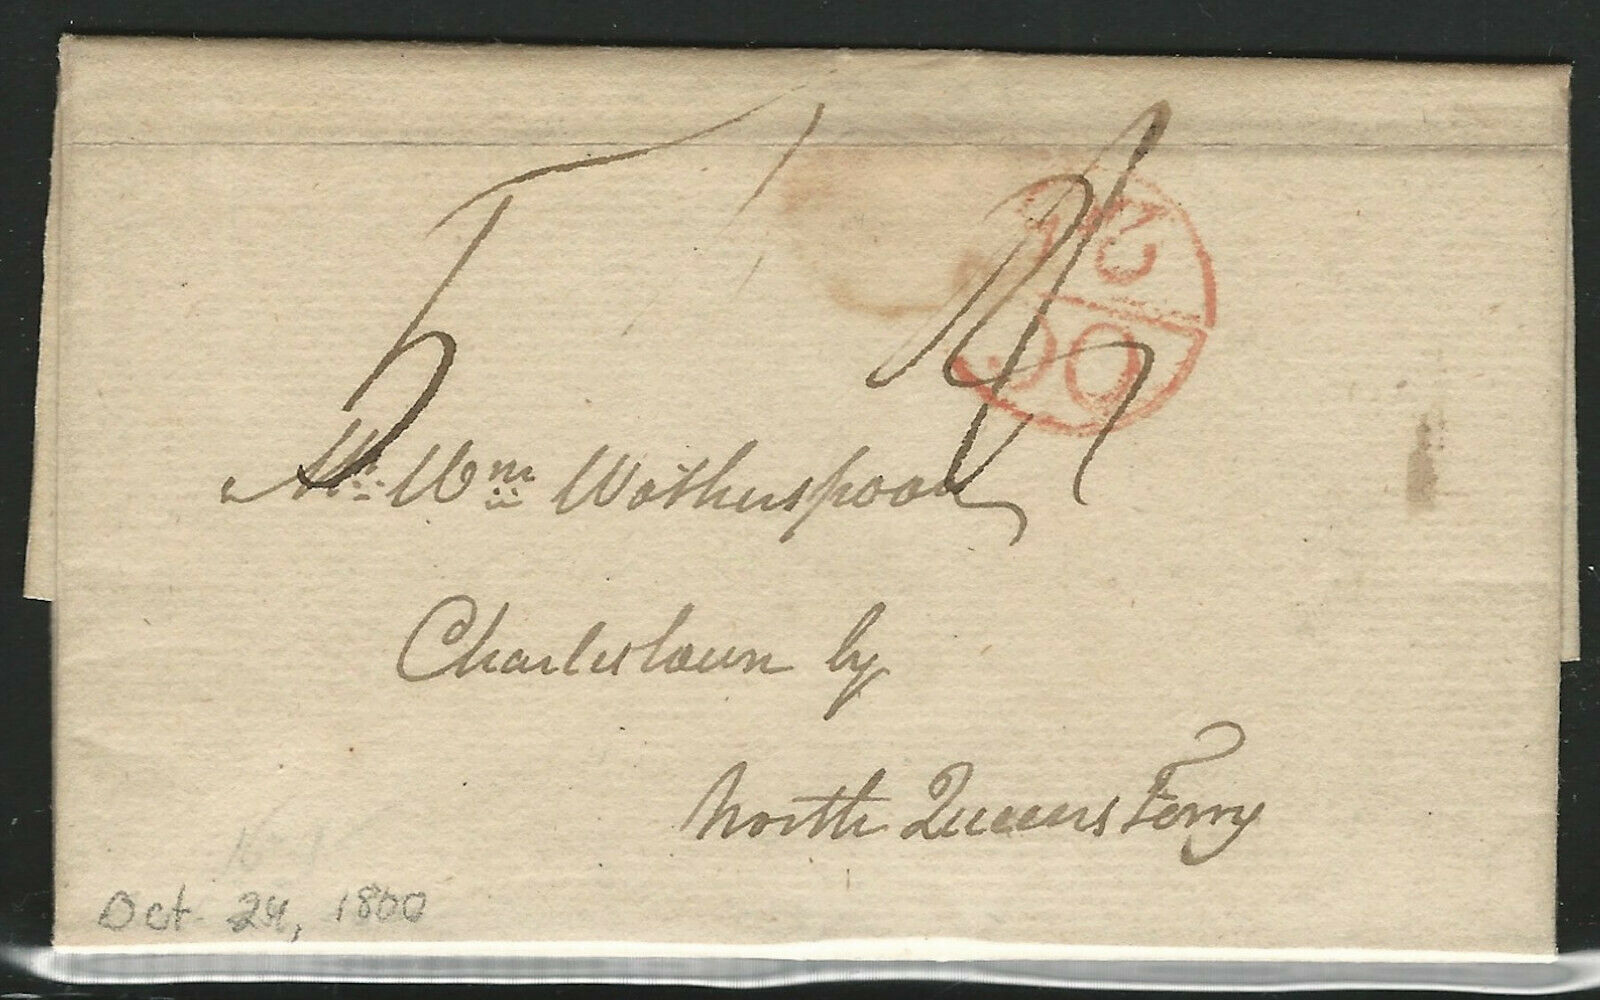 5
OC
Mr. Wm Wotherspoon
Charlestown by
North Queens Ferry
Oct. 24, 1800